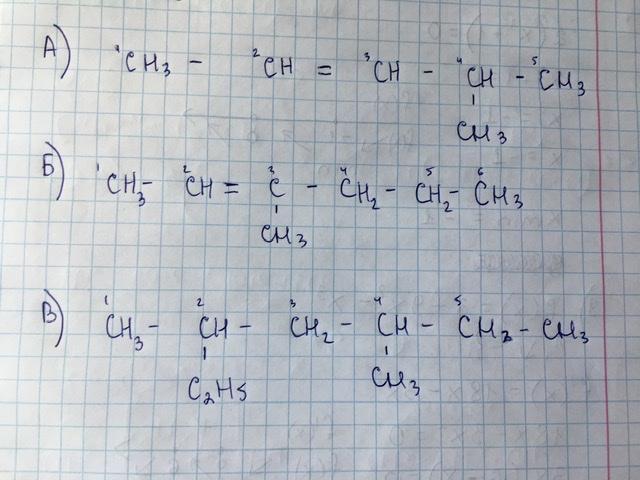 А) ¹CH₃ - ²CH = ³CH - ⁴CH - ⁵CH₃
CH₃
Б) ¹CH₃- ²CH = ³C - ⁴CH₂ - ⁵CH₂ - ⁶CH₃
CH₃
В) ¹CH₃ - ²CH - ³CH₂ - ⁴CH - ⁵CH₂ - CH₃
C₂H5
CH₃